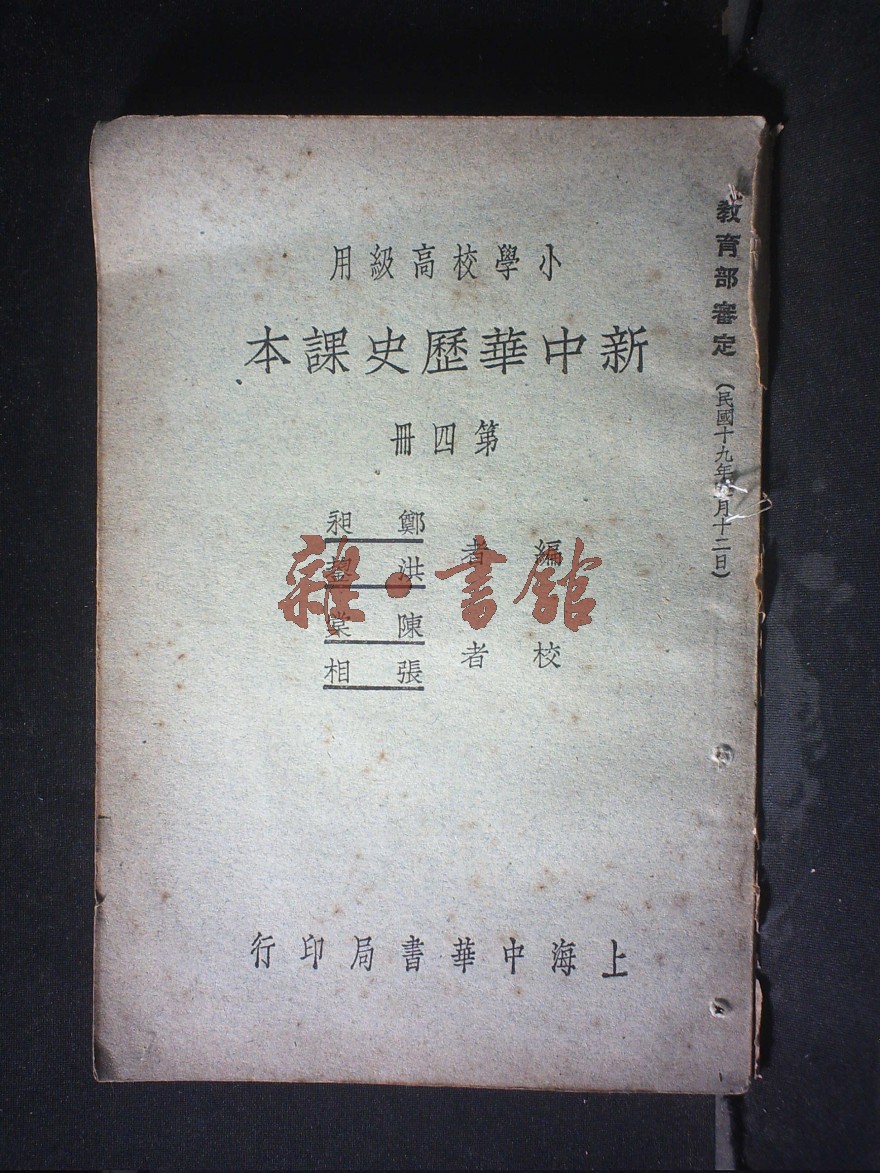 教育部審定（民國十九年四月十二日）
小學校高級用
新中華歷史課本
第四冊
編者
鄭昶
洪鋆
校者
陳棠
張相
上海中華書局印行
雜·書館